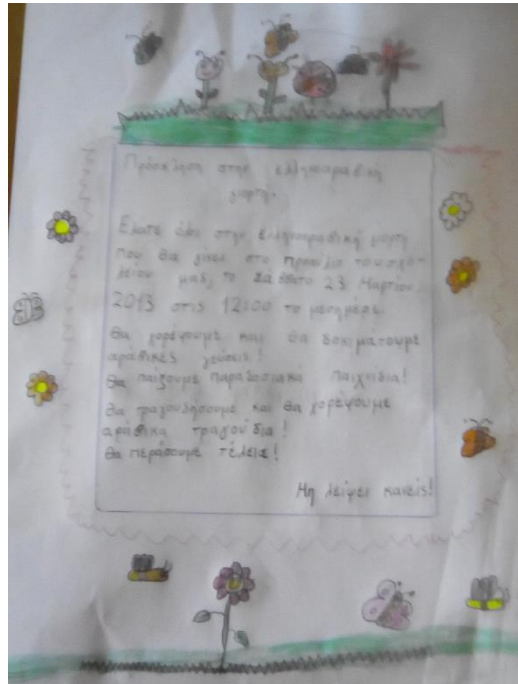 Πρόσκληση στην ελληνοαραβική
γιορτή.
Ελάτε όλοι στην ελληνοαραβική γιορτή
που θα γίνει στο προαύλιο του σχο-
λείου μας, το Σάββατο 23 Μαρτίου
2013 στις 12:00 το μεσημέρι.
Θα χορέψουμε και θα δοκιμάσουμε
αραβικές γεύσεις!
Θα παίξουμε παραδοσιακά παιχνίδια!
Θα τραγουδήσουμε και θα χορέψουμε
αραβικα τραγούδια!
Θα περάσουμε τέλεια!
Μη λείψει κανείς!